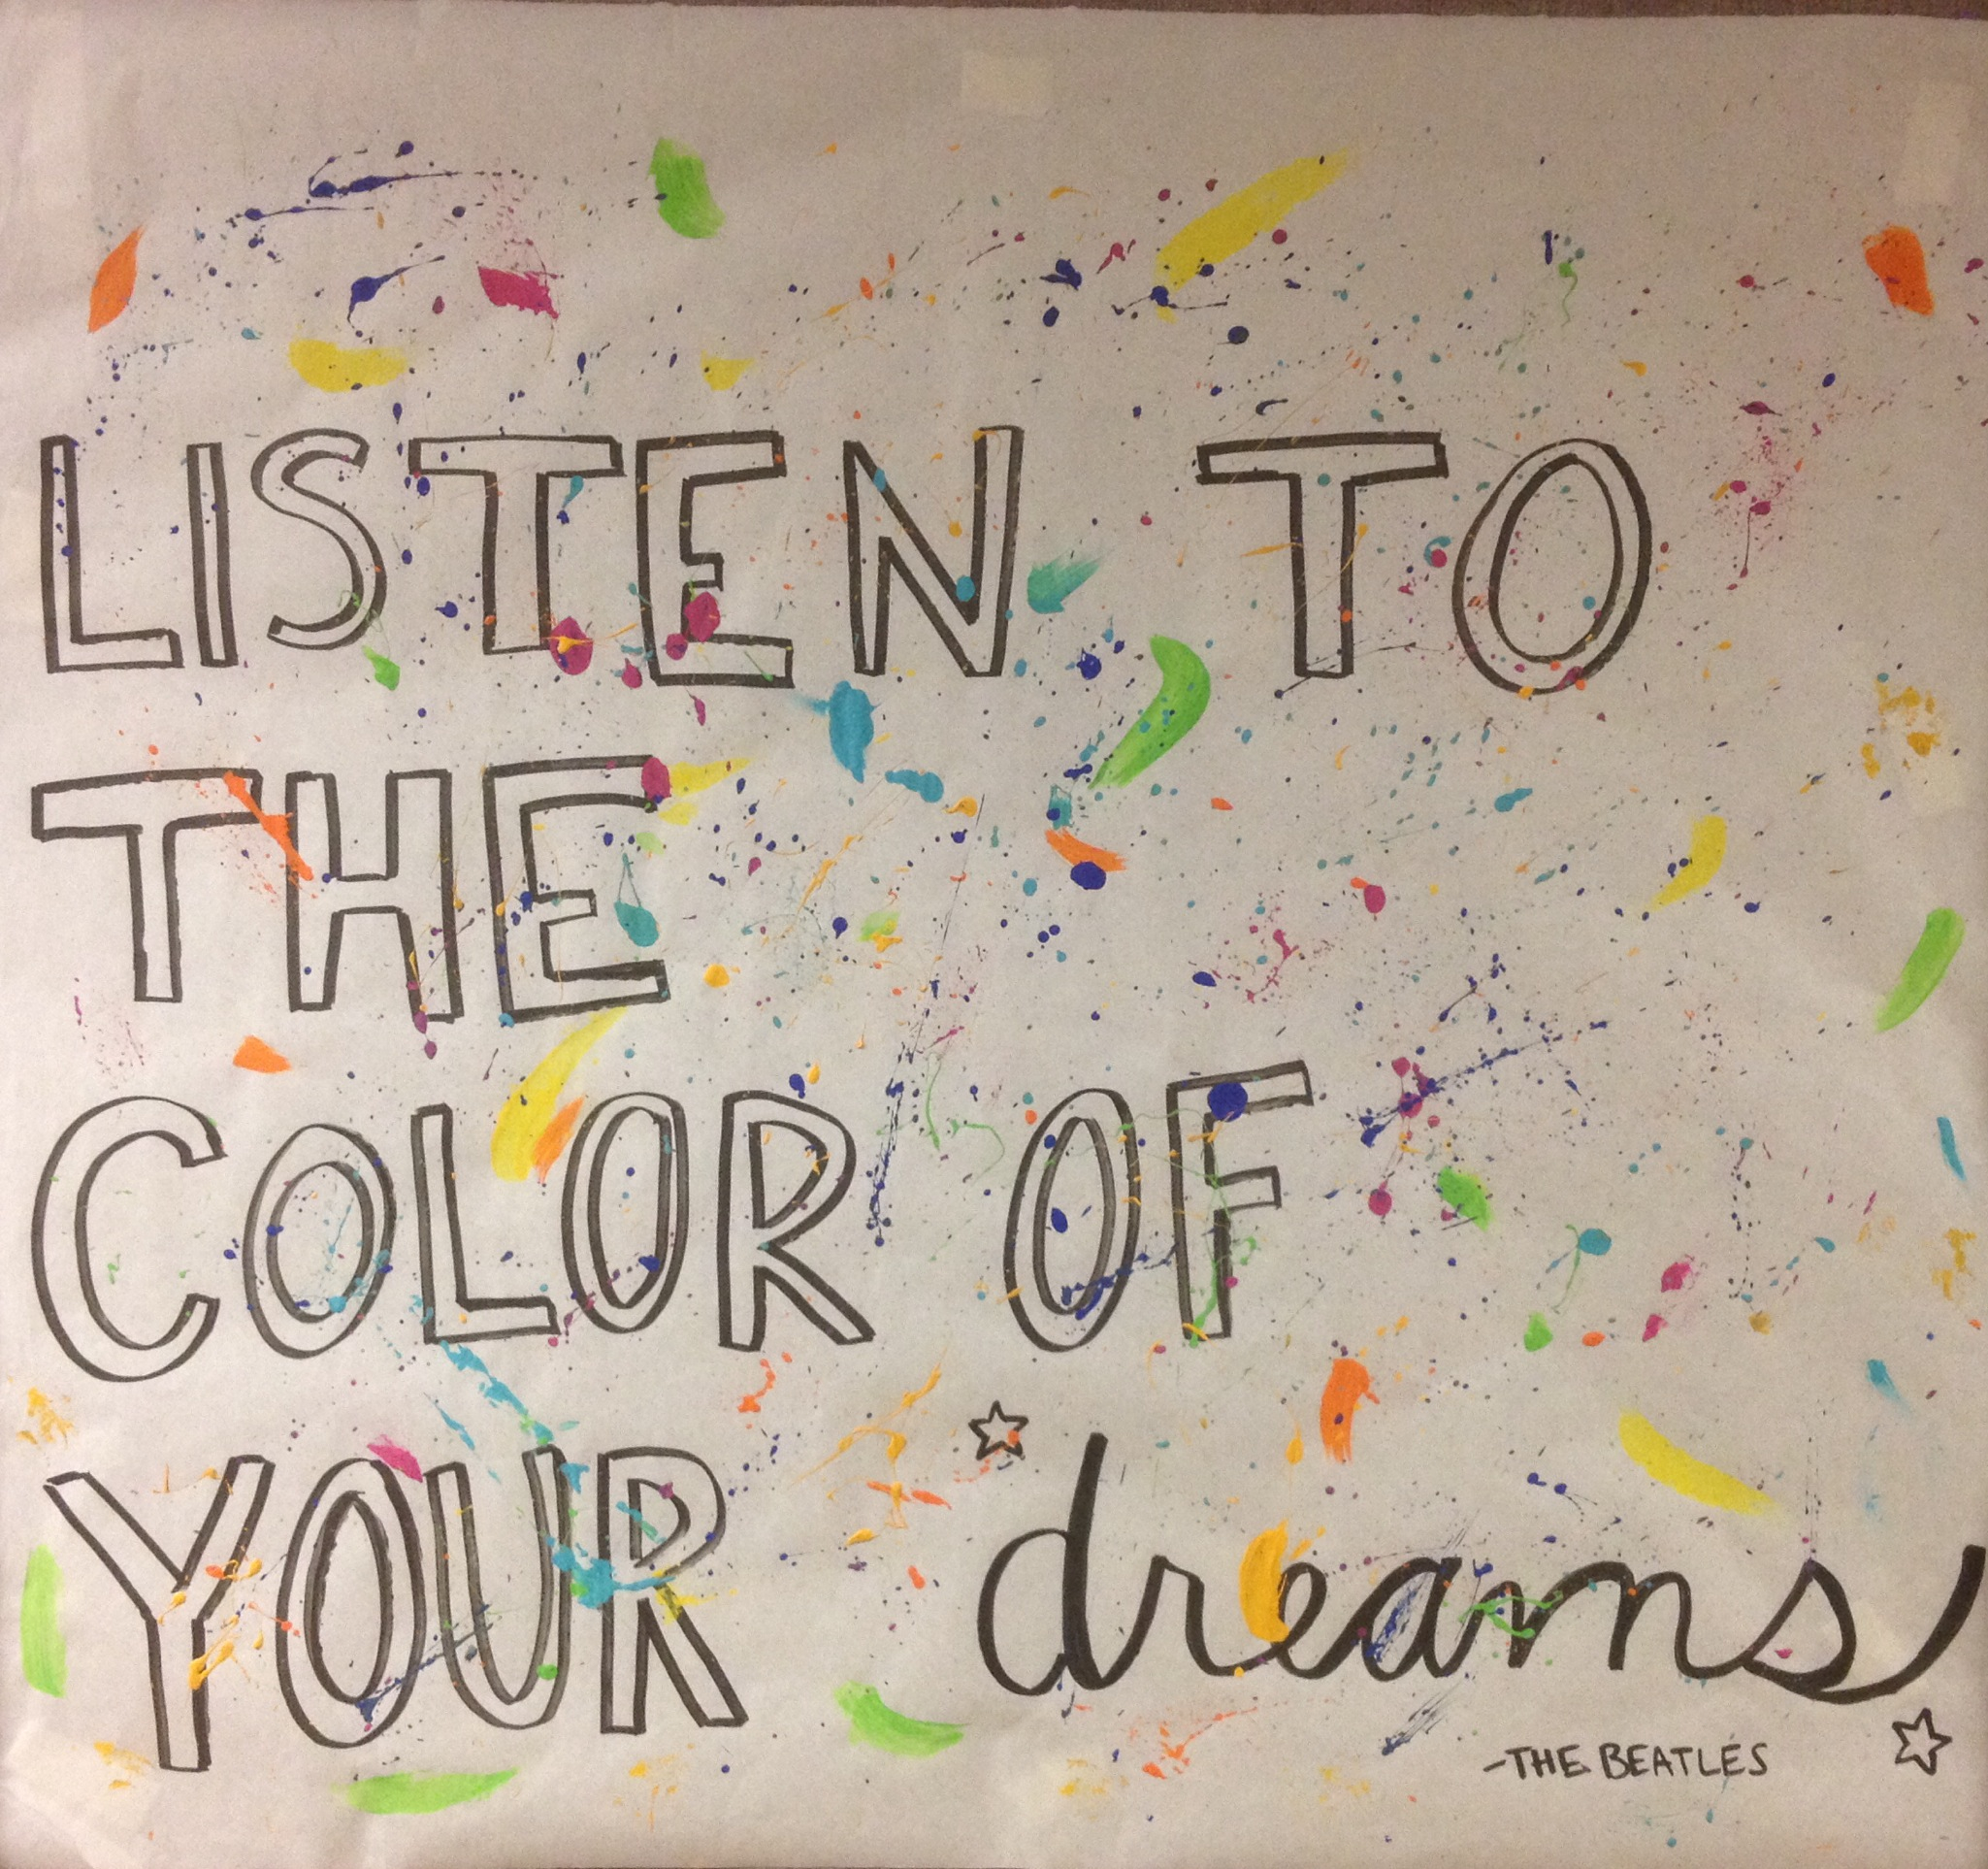 LISTEN TO
THE
COLOR OF
YOUR dreams
-THE BEATLES